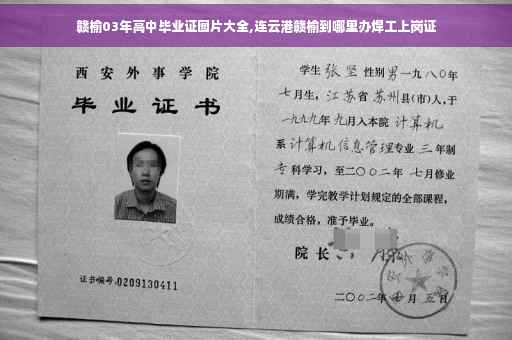 赣榆03年高中毕业证图片大全,连云港赣榆到哪里办焊工上岗证
西安外事学院
毕业证书
证书编号:0209130411
学生 张坚 性别 男 一九八〇年
七月生, 江苏省 苏州县(市)人,于
一九九九年 九月入本院 计算机
系 计算机信息管理专业 三 年制
专科学习, 至二〇〇二年 七月修业
期满, 学完教学计划规定的全部课程,
成绩合格, 准予毕业。
院长
二〇〇二年 七月 五日